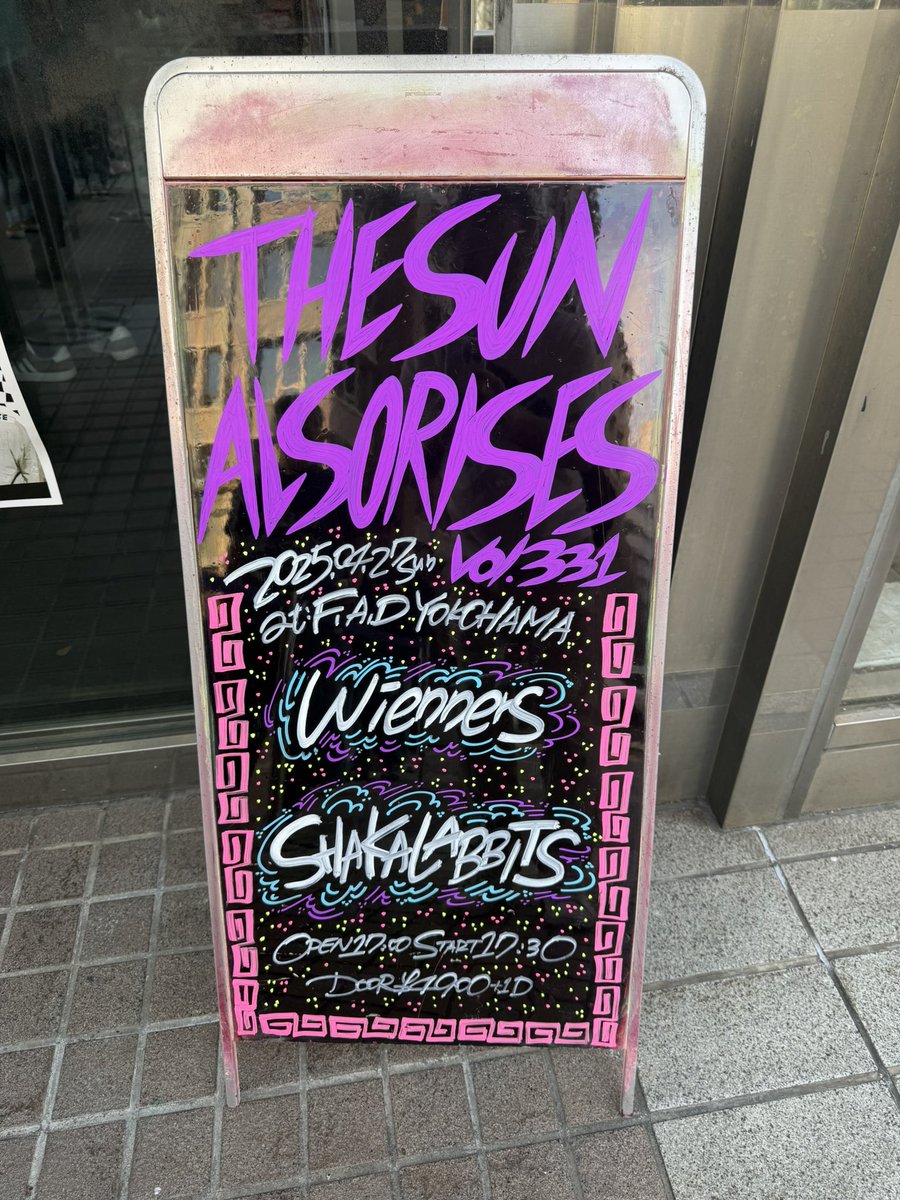 THE SUN
ALSO RISES
2025.04.27 sun Vol.331
at F.A.D YOKOHAMA
Wienners
SHAKALABBITS
OPEN 17:00 START 17:30
DOOR ¥4900+1D